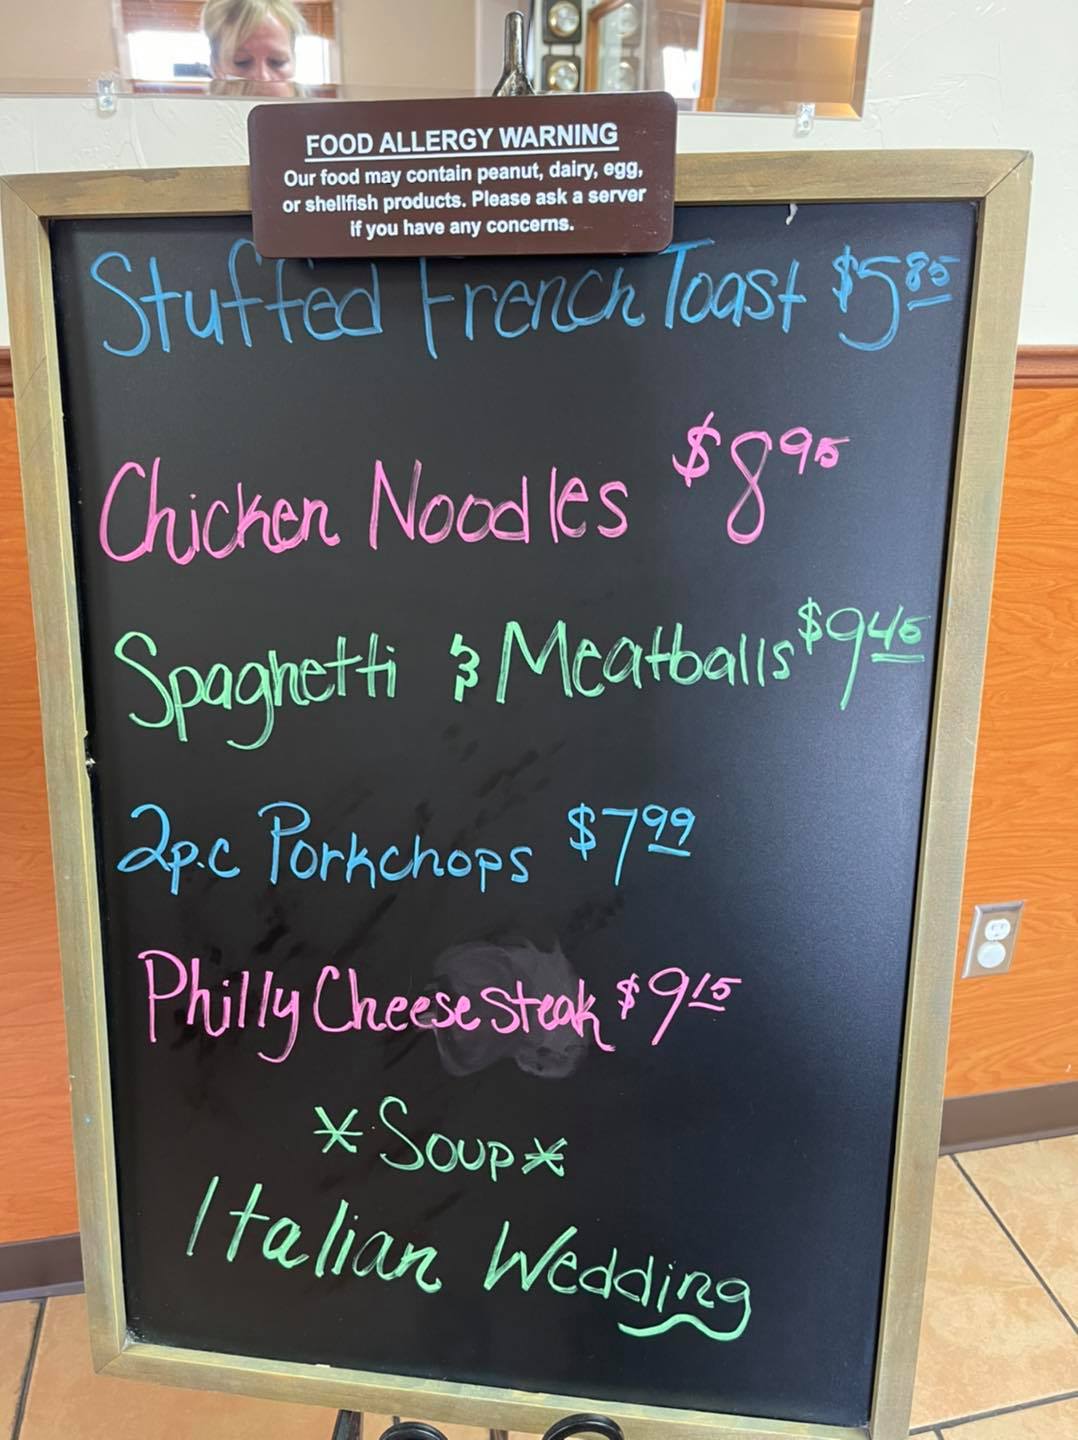 FOOD ALLERGY WARNING
Our food may contain peanut, dairy, egg,
or shellfish products. Please ask a server
if you have any concerns.
Stuffed French Toast $5.85
Chicken Noodles $8.95
Spaghetti & Meatballs $9.45
2p.c Porkchops $7.99
Philly Cheese Steak $9.15
*Soup*
Italian Wedding